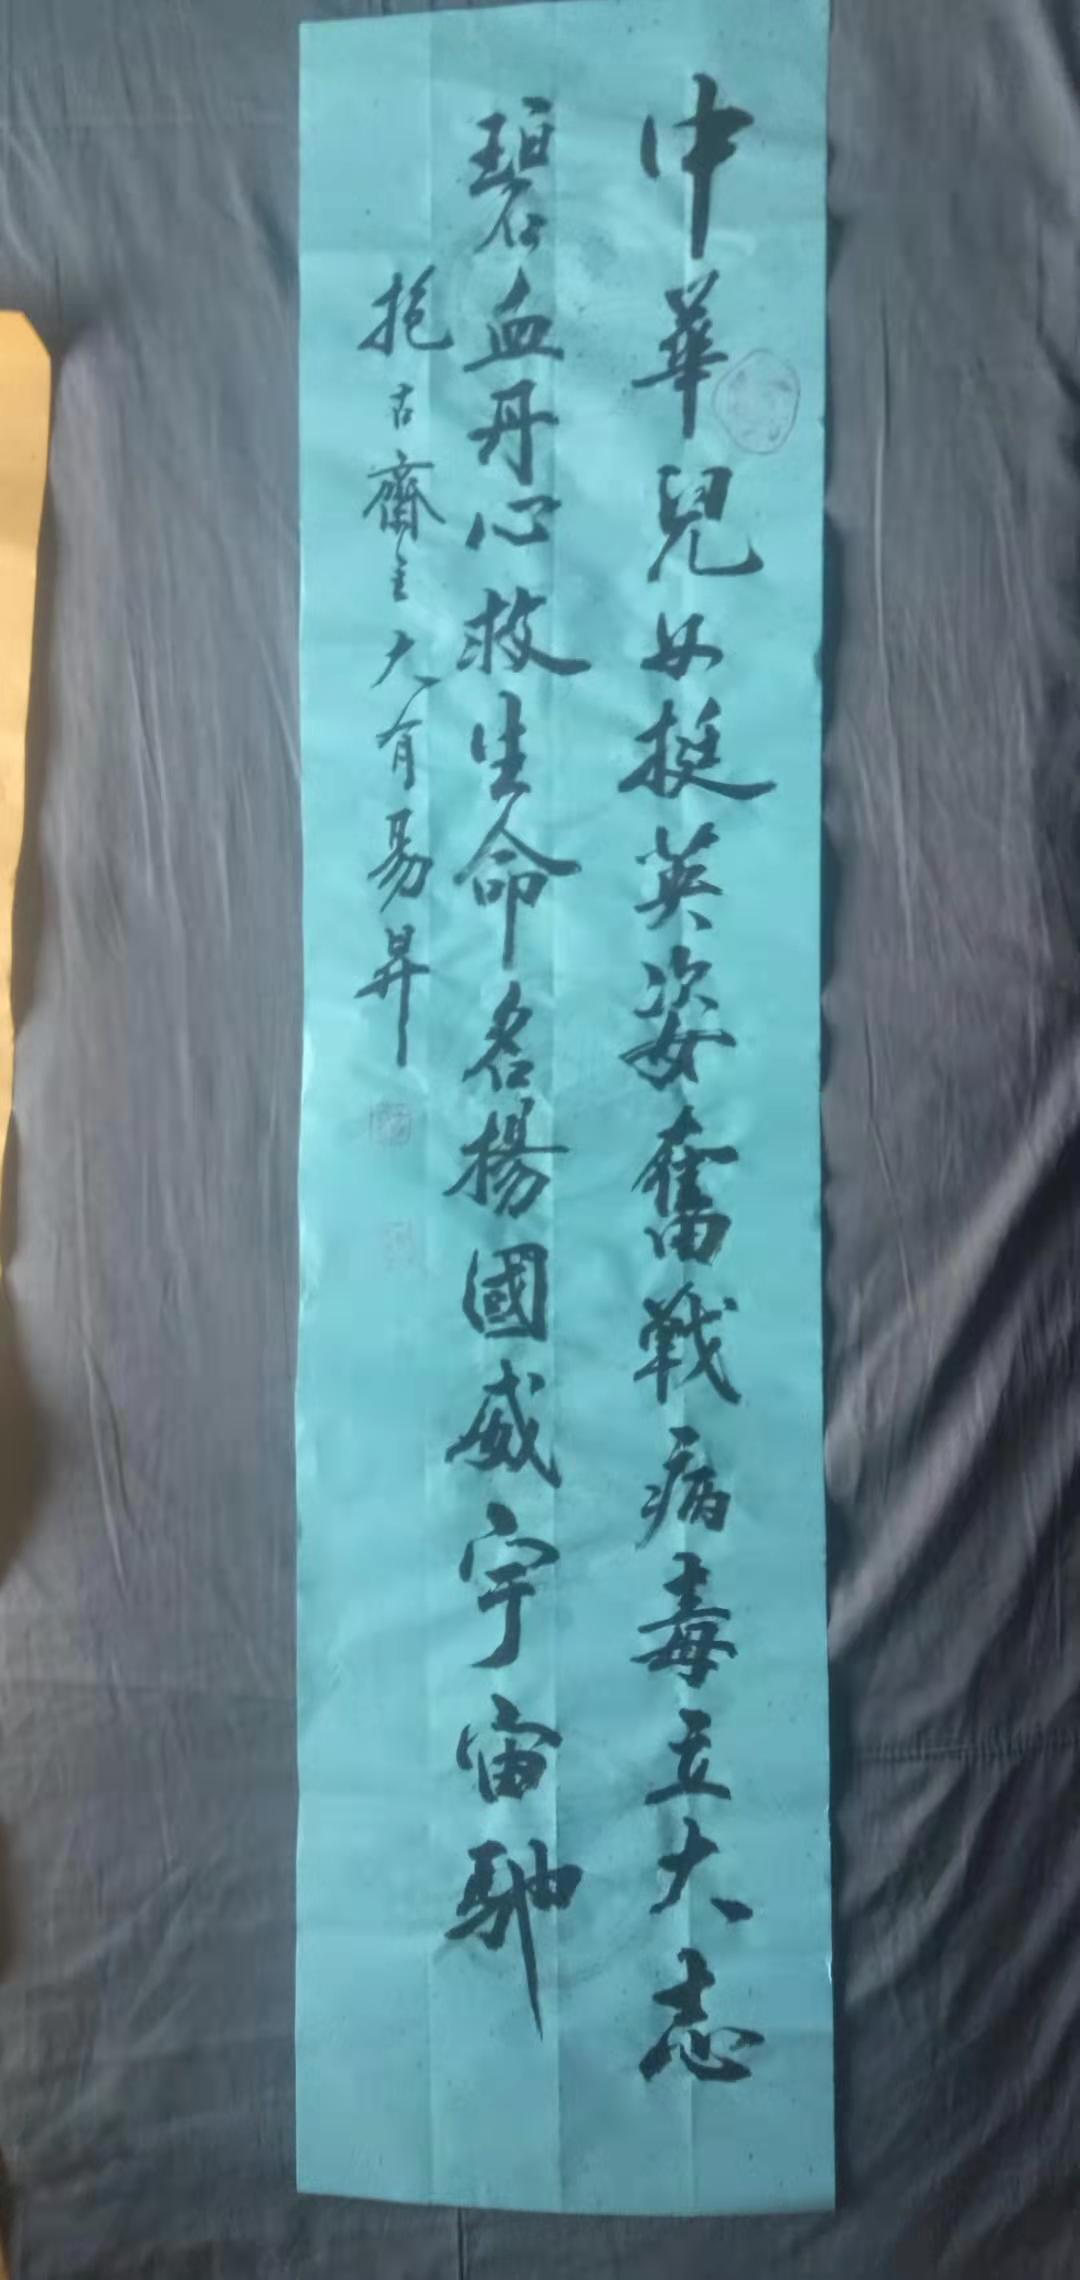 中華兒女挺英姿奮戰病毒立大志
碧血丹心救生命名揚國威宇宙馳
抱古齋主大有易昇